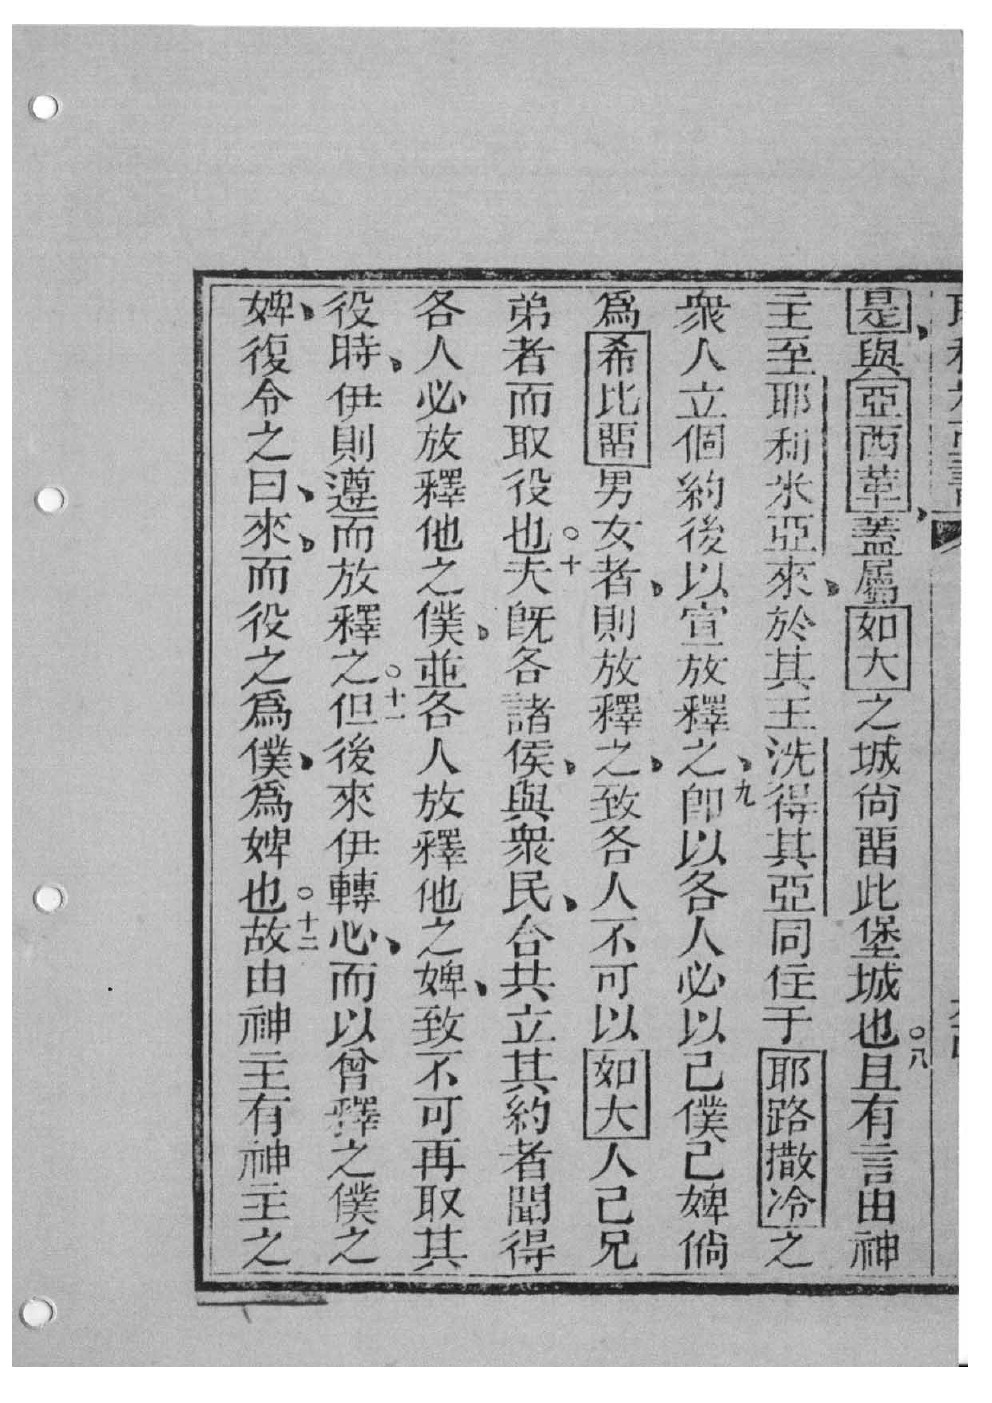 是、與亞西革、蓋屬如大之城尚畱此堡城也。八且有言由神
主至耶利米亞來、於其王洗得其亞同住于耶路撒冷之
衆人立個約後以宣放釋之、九卽以各人必以己僕己婢倘
爲希比畱男女者、則放釋之、致各人不可以如大人己兄
弟者而取役也。十夫旣各諸侯、與衆民、合共立其約者聞得
各人必放釋他之僕、並各人放釋他之婢、致不可再取其
役時、伊則遵而放釋之。十一但後來伊轉心、而以曾釋之僕之
婢、復令之曰、來、而役之爲僕、爲婢也。十二故由神主有神主之